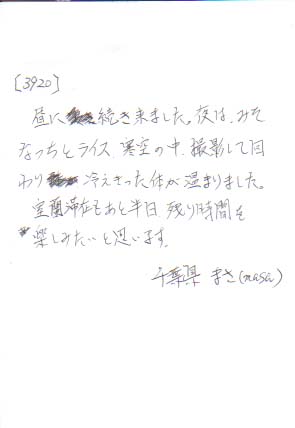 [3920]
昼に続き来ました。夜は、みそ
なっちとライス、寒空の中、撮影して回
わり冷えきった体が温まりました。
室蘭滞在もあと半日、残り時間を
楽しみたいと思います。
千葉県 まさ(masa)